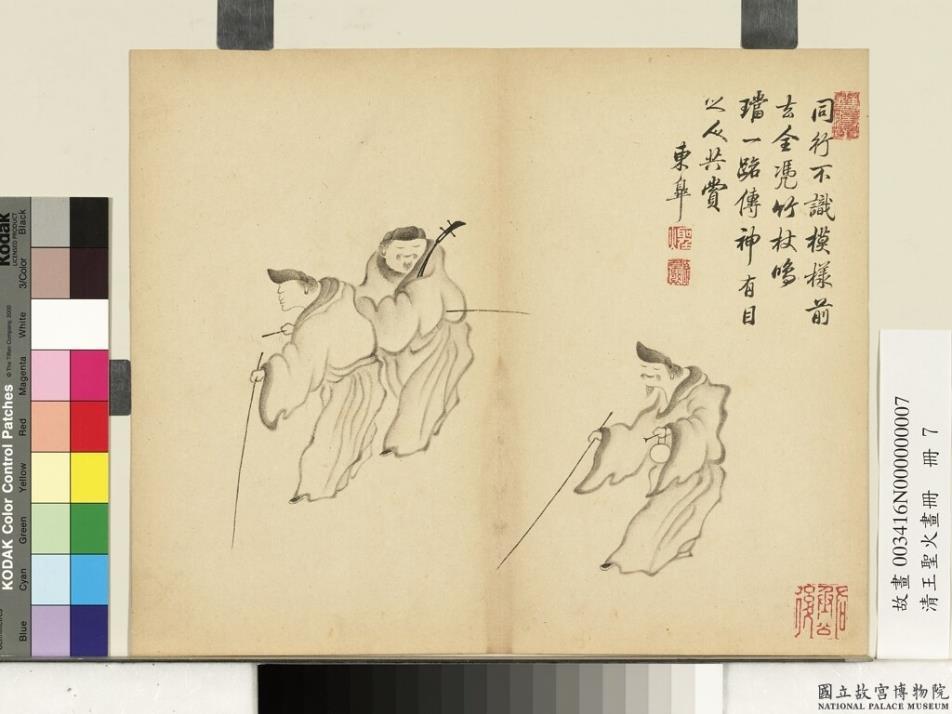 同行不識模樣前
去全憑竹杖鳴
璫一路傳神有目
之人共賞
東皋
故畫 003416N000000007
清王聖火畫冊 冊 7
國立故宮博物院
NATIONAL PALACE MUSEUM
Kodak
LICENSED PRODUCT
KODAK Color Control Patches
© The Tiffen Company, 2000
Blue
Cyan
Green
Yellow
Red
Magenta
White
3/Color
Black